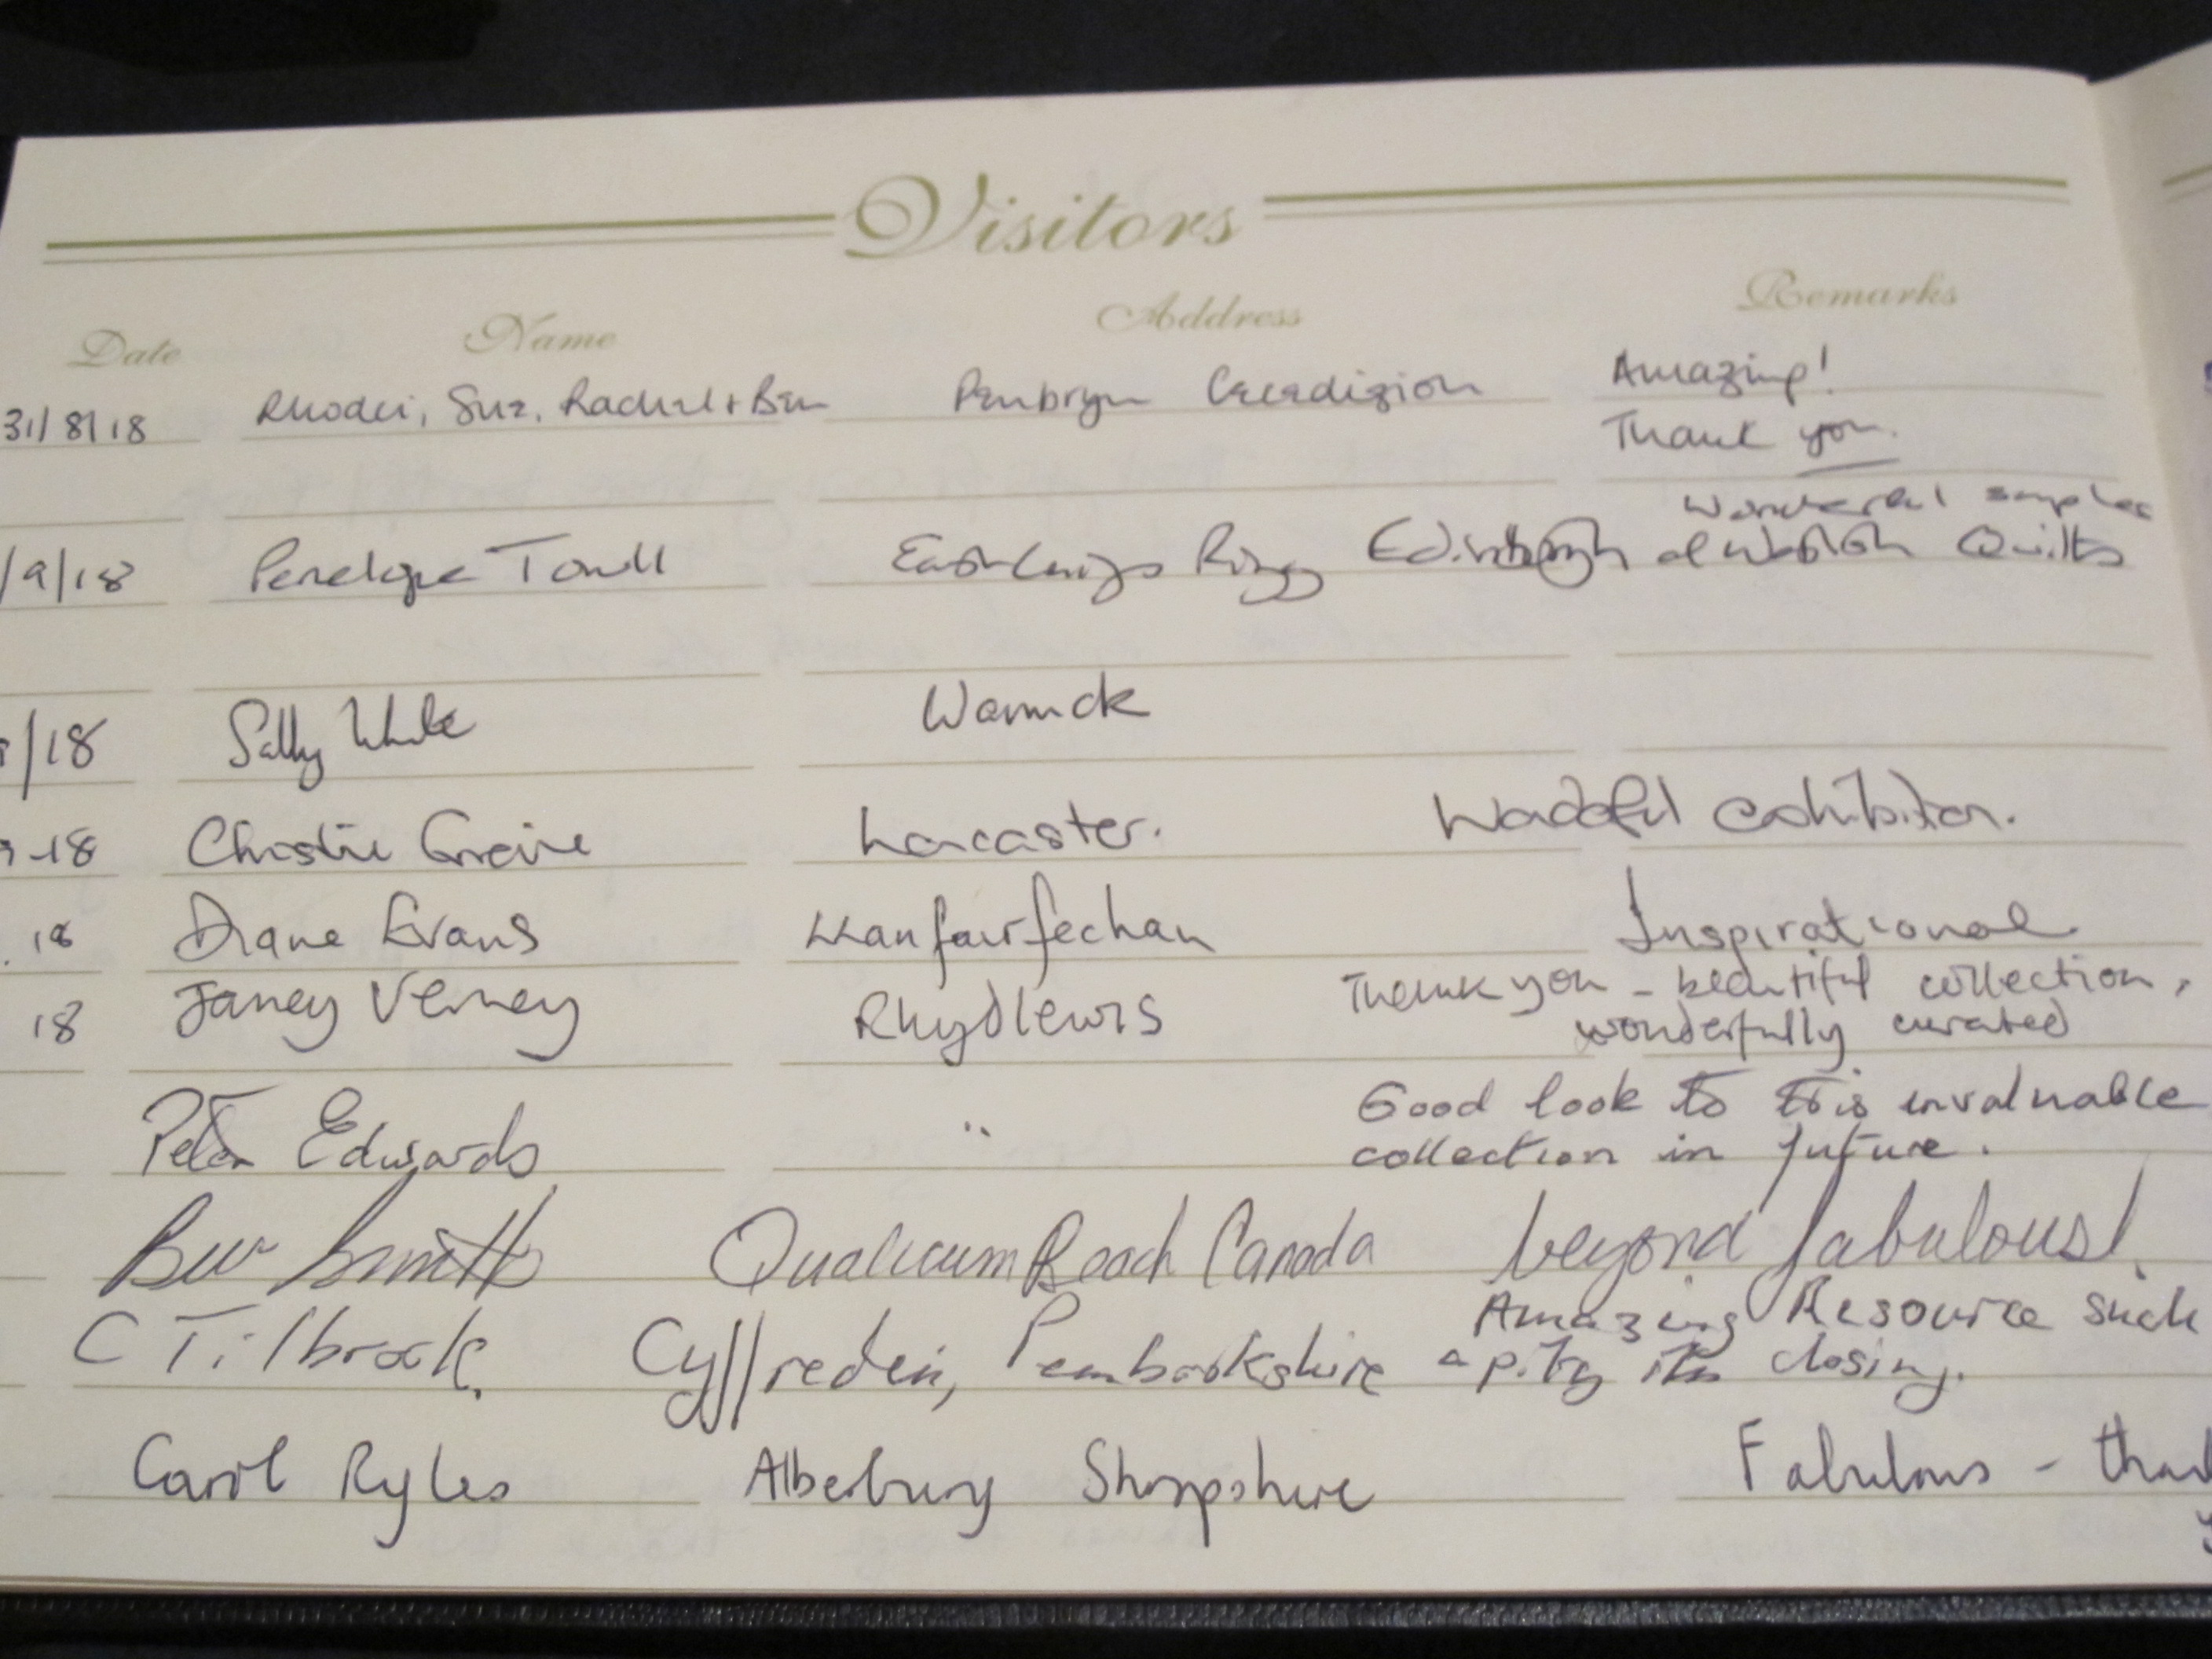 Visitors
Date Name Address Remarks
Amazing!
31/8/18 Rhodri, Sue, Rachel + Ben Penbryn Ceredigion
Thank you.
Wonderful samples
/9/18 Penelope Edinburgh of Welsh Quilts
/18 Sally White Warwick
-18 Christie Lancaster. Wonderful exhibition.
18 Diane Evans Llanfairfechan Inspirational
18 Janey Verney Rhydlewis Thank you - beautiful collection,
wonderfully curated
Peter Edwards " Good look to this invaluable
collection in future.
Bev Smith Qualicum Beach Canada beyond fabulous!
Amazing Resource such
C Tilbrook. Cyffredin, Pembrokshire a pity its closing.
Carol Ryles Alberbury Shropshire Fabulous - than